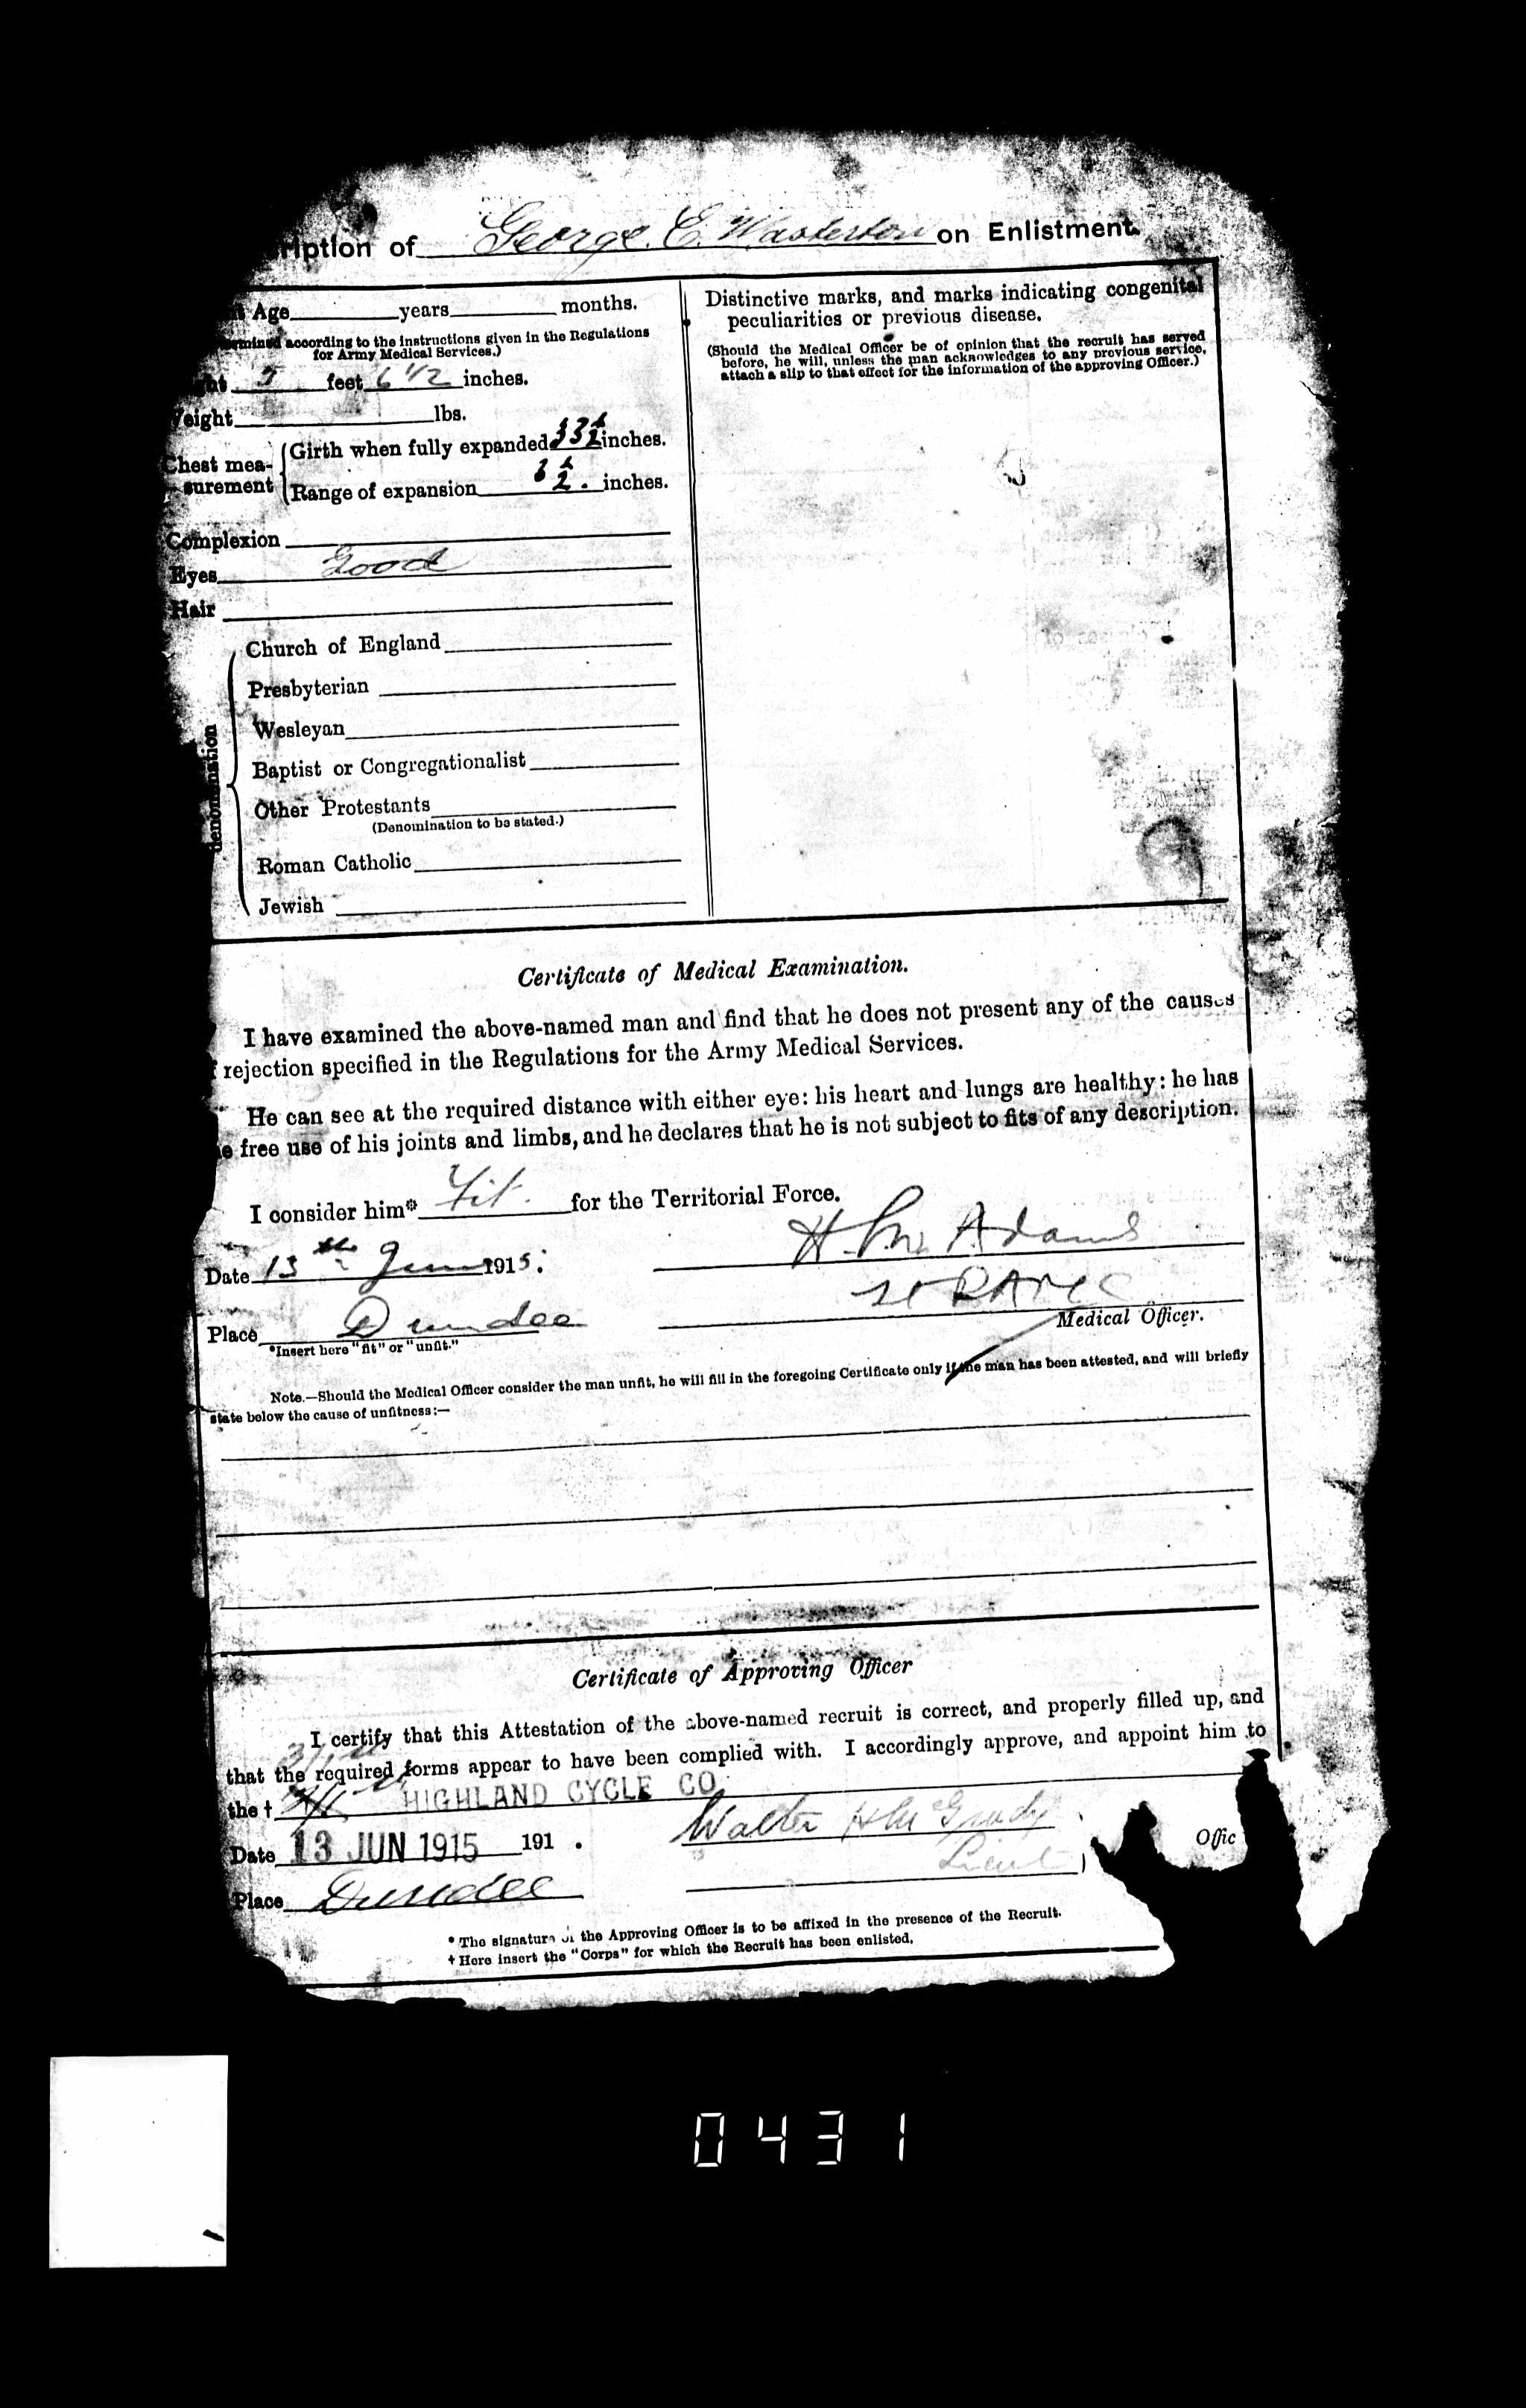 ription of George. E. Wasterton on Enlistment.
Age years months.
ermined according to the instructions given in the Regulations
for Army Medical Services.)
ght 5 feet 6 1/2 inches.
Weight lbs.
Chest mea-
surement
Girth when fully expanded 33½ inches.
Range of expansion 3½. inches.
Complexion
Eyes Good
Hair
denomination
Church of England
Presbyterian
Wesleyan
Baptist or Congregationalist
Other Protestants
(Denomination to be stated.)
Roman Catholic
Jewish
Distinctive marks, and marks indicating congenital
peculiarities or previous disease.
(Should the Medical Officer be of opinion that the recruit has served
before, he will, unless the man acknowledges to any previous service,
attach a slip to that effect for the information of the approving Officer.)
Certificate of Medical Examination.
I have examined the above-named man and find that he does not present any of the causes
f rejection specified in the Regulations for the Army Medical Services.
He can see at the required distance with either eye: his heart and lungs are healthy: he has
e free use of his joints and limbs, and he declares that he is not subject to fits of any description.
I consider him* Fit. for the Territorial Force.
Date 13th June 1915.
H. Adams
Lt RAMC
Place Dundee
Medical Officer.
*Insert here "fit" or "unfit."
Note.—Should the Medical Officer consider the man unfit, he will fill in the foregoing Certificate only if the man has been attested, and will briefly
state below the cause of unfitness:—
Certificate of Approving Officer
I certify that this Attestation of the above-named recruit is correct, and properly filled up, and
that the required forms appear to have been complied with. I accordingly approve, and appoint him to
the † HIGHLAND CYCLE CO
Walter
Date 13 JUN 1915 191 .
Lieut
Offic
Place Dundee
* The signature of the Approving Officer is to be affixed in the presence of the Recruit.
† Here insert the "Corps" for which the Recruit has been enlisted.
0431